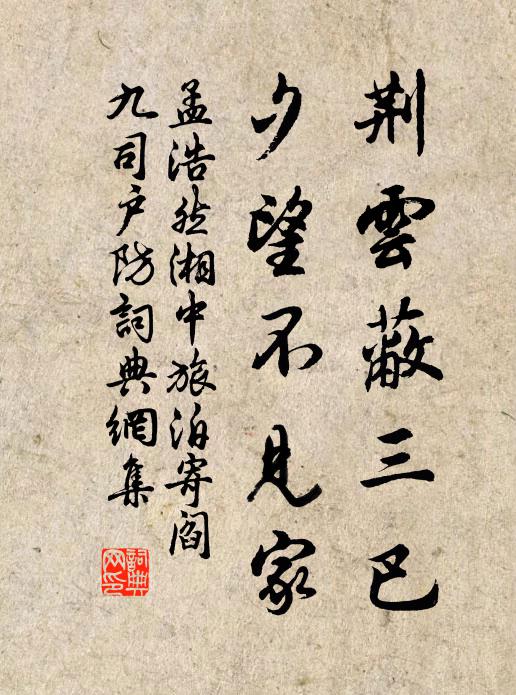 荆雲蔽三巴
夕望不見家
孟浩然湘中旅泊寄閻
九司户防詞典網集
詞典
网印